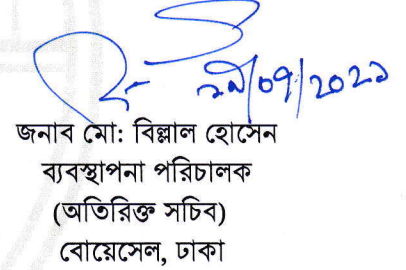 জনাব মো: বিল্লাল হোসেন
ব্যবস্থাপনা পরিচালক
(অতিরিক্ত সচিব)
বোয়েসেল, ঢাকা